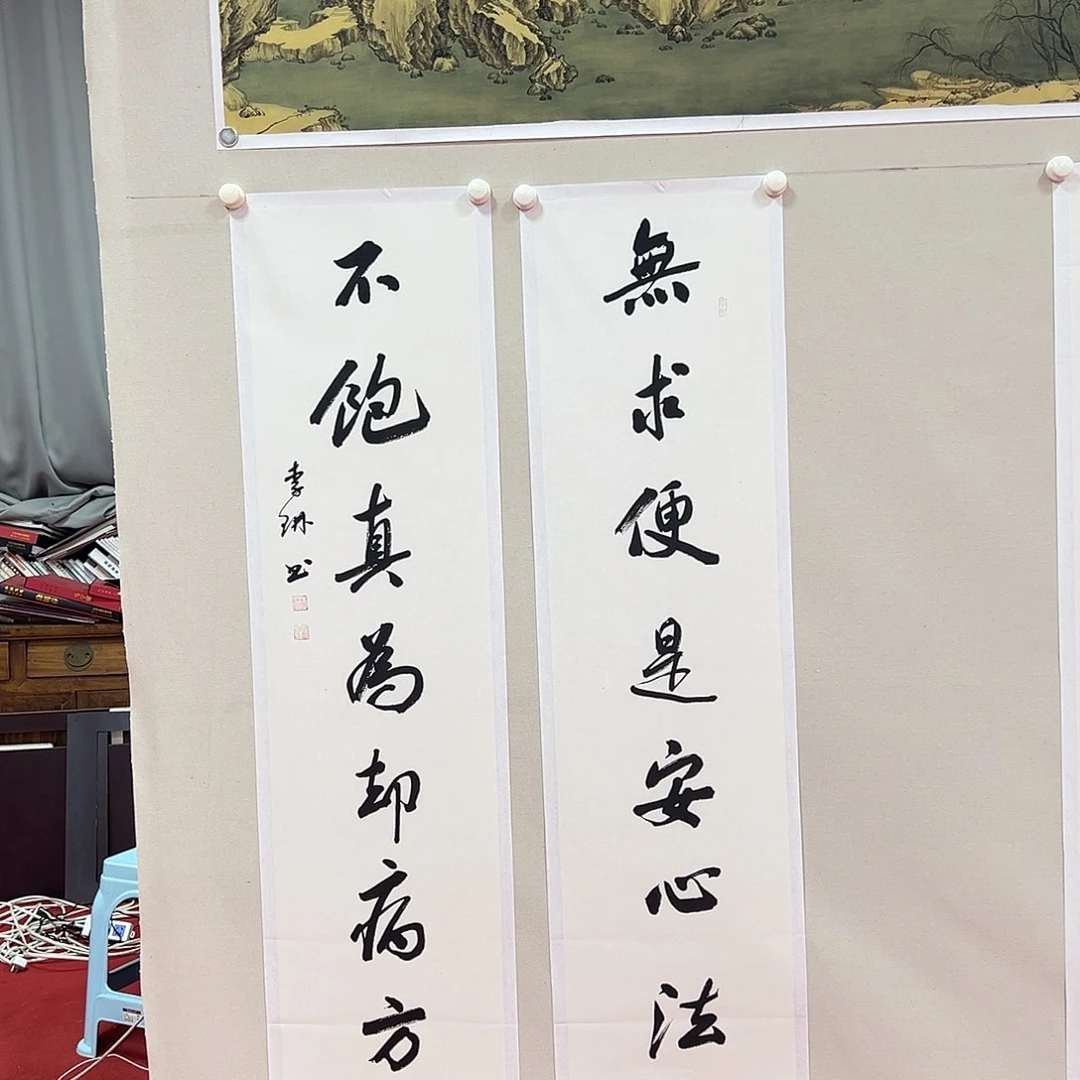 無求便是安心法
不飽真為却病方
李琳书